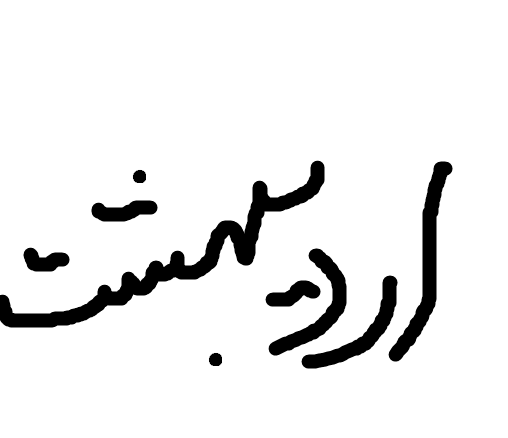 اردیبهشت